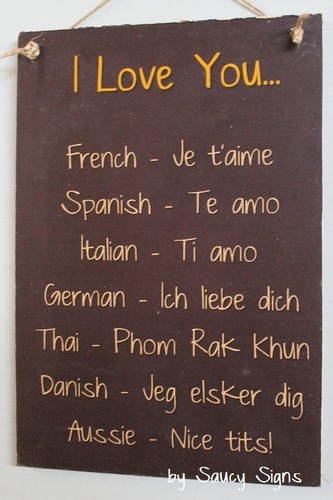 I Love You...
French - Je t'aime
Spanish - Te amo
Italian - Ti amo
German - Ich liebe dich
Thai - Phom Rak Khun
Danish - Jeg elsker dig
Aussie - Nice tits!
by Saucy Signs